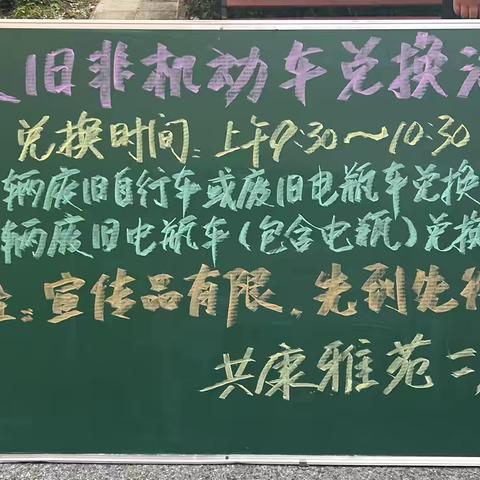 旧非机动车兑换活
兑换时间:上午9:30～10:30
辆废旧自行车或废旧电瓶车兑换
辆废旧电瓶车(包含电瓶)兑换
注:宣传品有限、先到先得
共康雅苑二